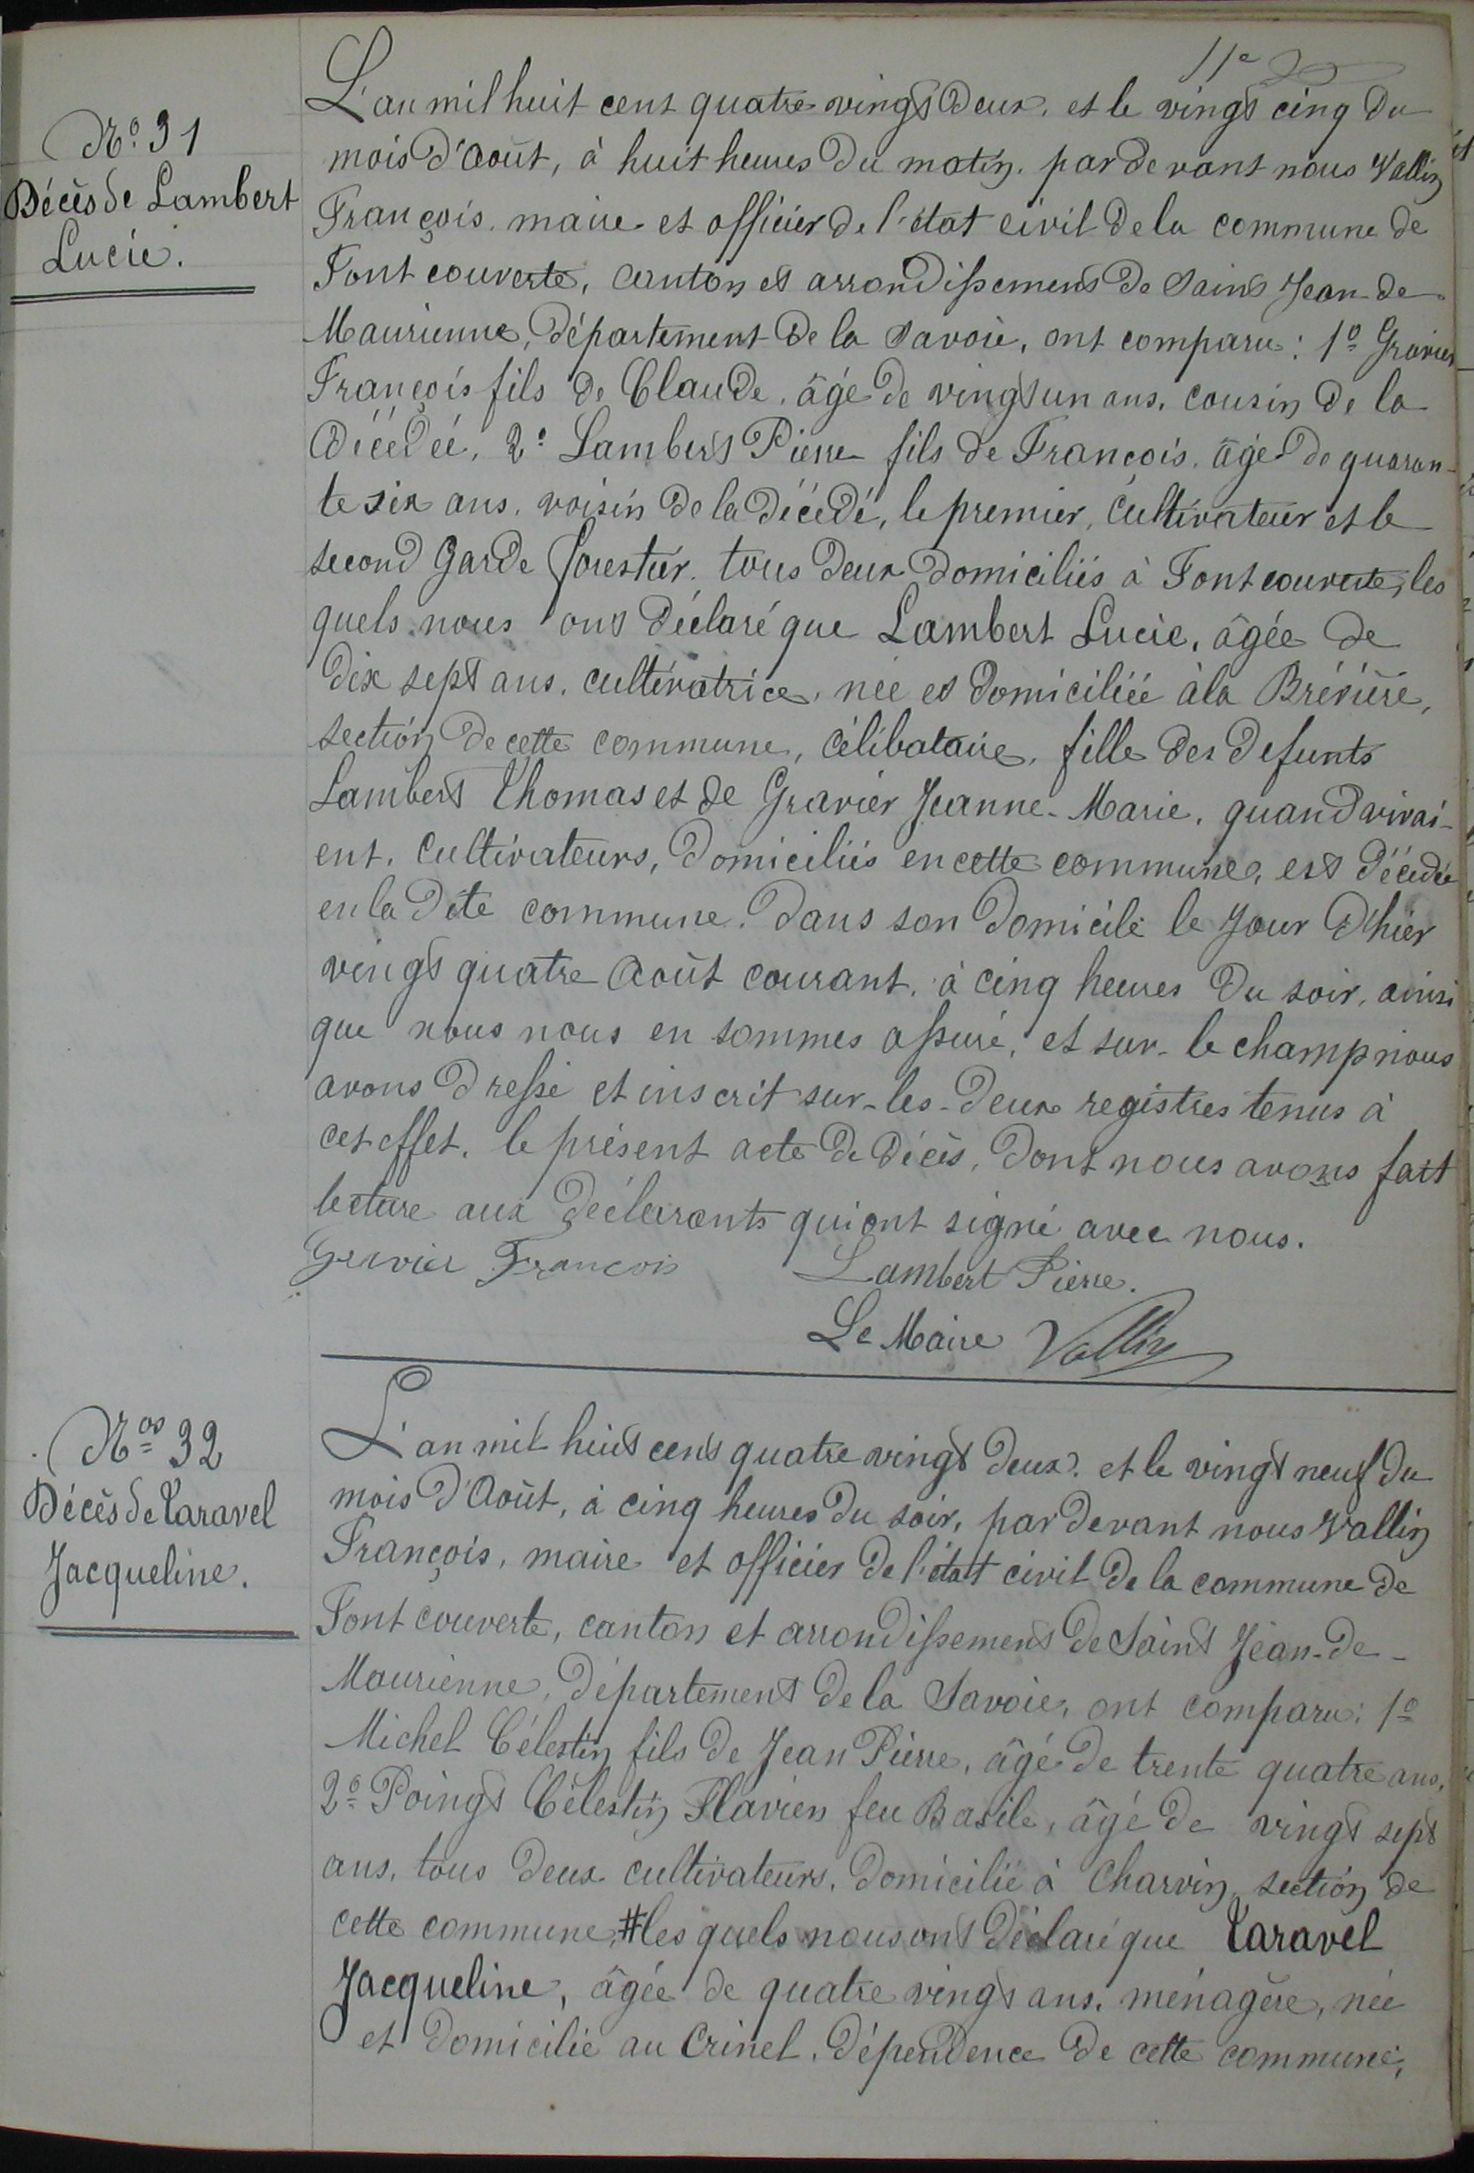 11e
N° 31
Décès de Lambert
Lucie.
L'an mil huit cent quatre vingt deux. et le vingt cinq du
mois d'août, à huit heures du matin. par devant nous Vallin
François. maire et officier de l'état civil de la commune de
Font couverte, canton et arrondissement de Saint Jean-de-
Maurienne, département de la Savoie, ont comparu: 1° Gravier
François fils de Claude, âgé de vingt un ans, cousin de la
décédée, 2° Lambert Pierre fils de François, âgé de quaran-
te six ans, voisin de la décédé, le premier, cultivateur et le
second garde forestier. tous deux domiciliés à Font couverte, les
quels nous ont déclaré que Lambert Lucie, âgée de
dix sept ans, cultivatrice, née et domiciliée à la Brévière,
section de cette commune, célibataire, fille des defunts
Lambert Thomas et de Gravier Jeanne-Marie, quand vivai-
ent, cultivateurs, domiciliés en cette commune, est décédée
en la dite commune. dans son domicile le jour d'hier
vingt quatre Août courant, à cinq heures du soir, ainsi
que nous nous en sommes assuré, et sur-le champ nous
avons dressé et inscrit sur-les-deux registres tenus à
cet effet, le présent acte de décès, dont nous avons fait
lecture aux déclarants qui ont signé avec nous.
Gravier François Lambert Pierre.
Le Maire Vallin
Nos 32
Décès de Taravel
Jacqueline.
L'an mil huit cent quatre vingt deux. et le vingt neuf du
mois d'Août, à cinq heures du soir, par devant nous Vallin
François, maire et officier de l'état civil de la commune de
Font couverte, canton et arrondissement de Saint Jean-de-
Maurienne, département de la Savoie, ont comparu: 1°
Michel Célestin fils de Jean Pierre, âgé de trente quatre ans,
2° Poingt Célestin Flavien feu Basile, âgé de vingt sept
ans, tous deux cultivateurs, domicilié à Charvin, section de
cette commune, # les quels nous ont déclaré que Taravel
Jacqueline, âgée de quatre vingt ans, ménagère, née
et domicilié au Crinel, dépendence de cette commune,